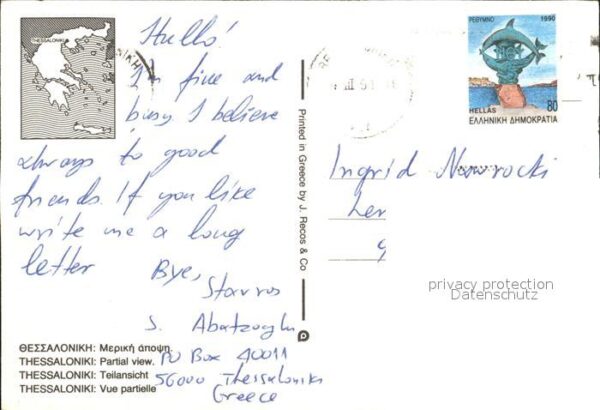 THESSALONIKI
Hullo!
I'm fine and
busy I believe
always to good
friends. If you like
write me a long
letter
Bye,
Stavros
S. Abatzoglu
PO Box 40011
56000 Thessaloniki
Greece
ΘΕΣΣΑΛΟΝΙΚΗ: Μερική άποψη.
THESSALONIKI: Partial view.
THESSALONIKI: Teilansicht
THESSALONIKI: Vue partielle
Printed in Greece by J. Recos & Co
ΡΕΘΥΜΝΟ 1990
HELLAS 80
ΕΛΛΗΝΙΚΗ ΔΗΜΟΚΡΑΤΙΑ
Ingrid Nawrocki
Ler
9
privacy protection
Datenschutz